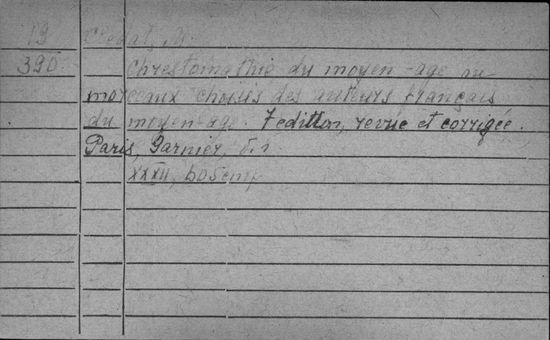 19 Cledat, M.
390 Chrestomathie du moyen-age ou
morceaux choisis des auteurs français
du moyen age. 7 edition, revue et corrigée.
Paris, Garnier, s.
XXXII,